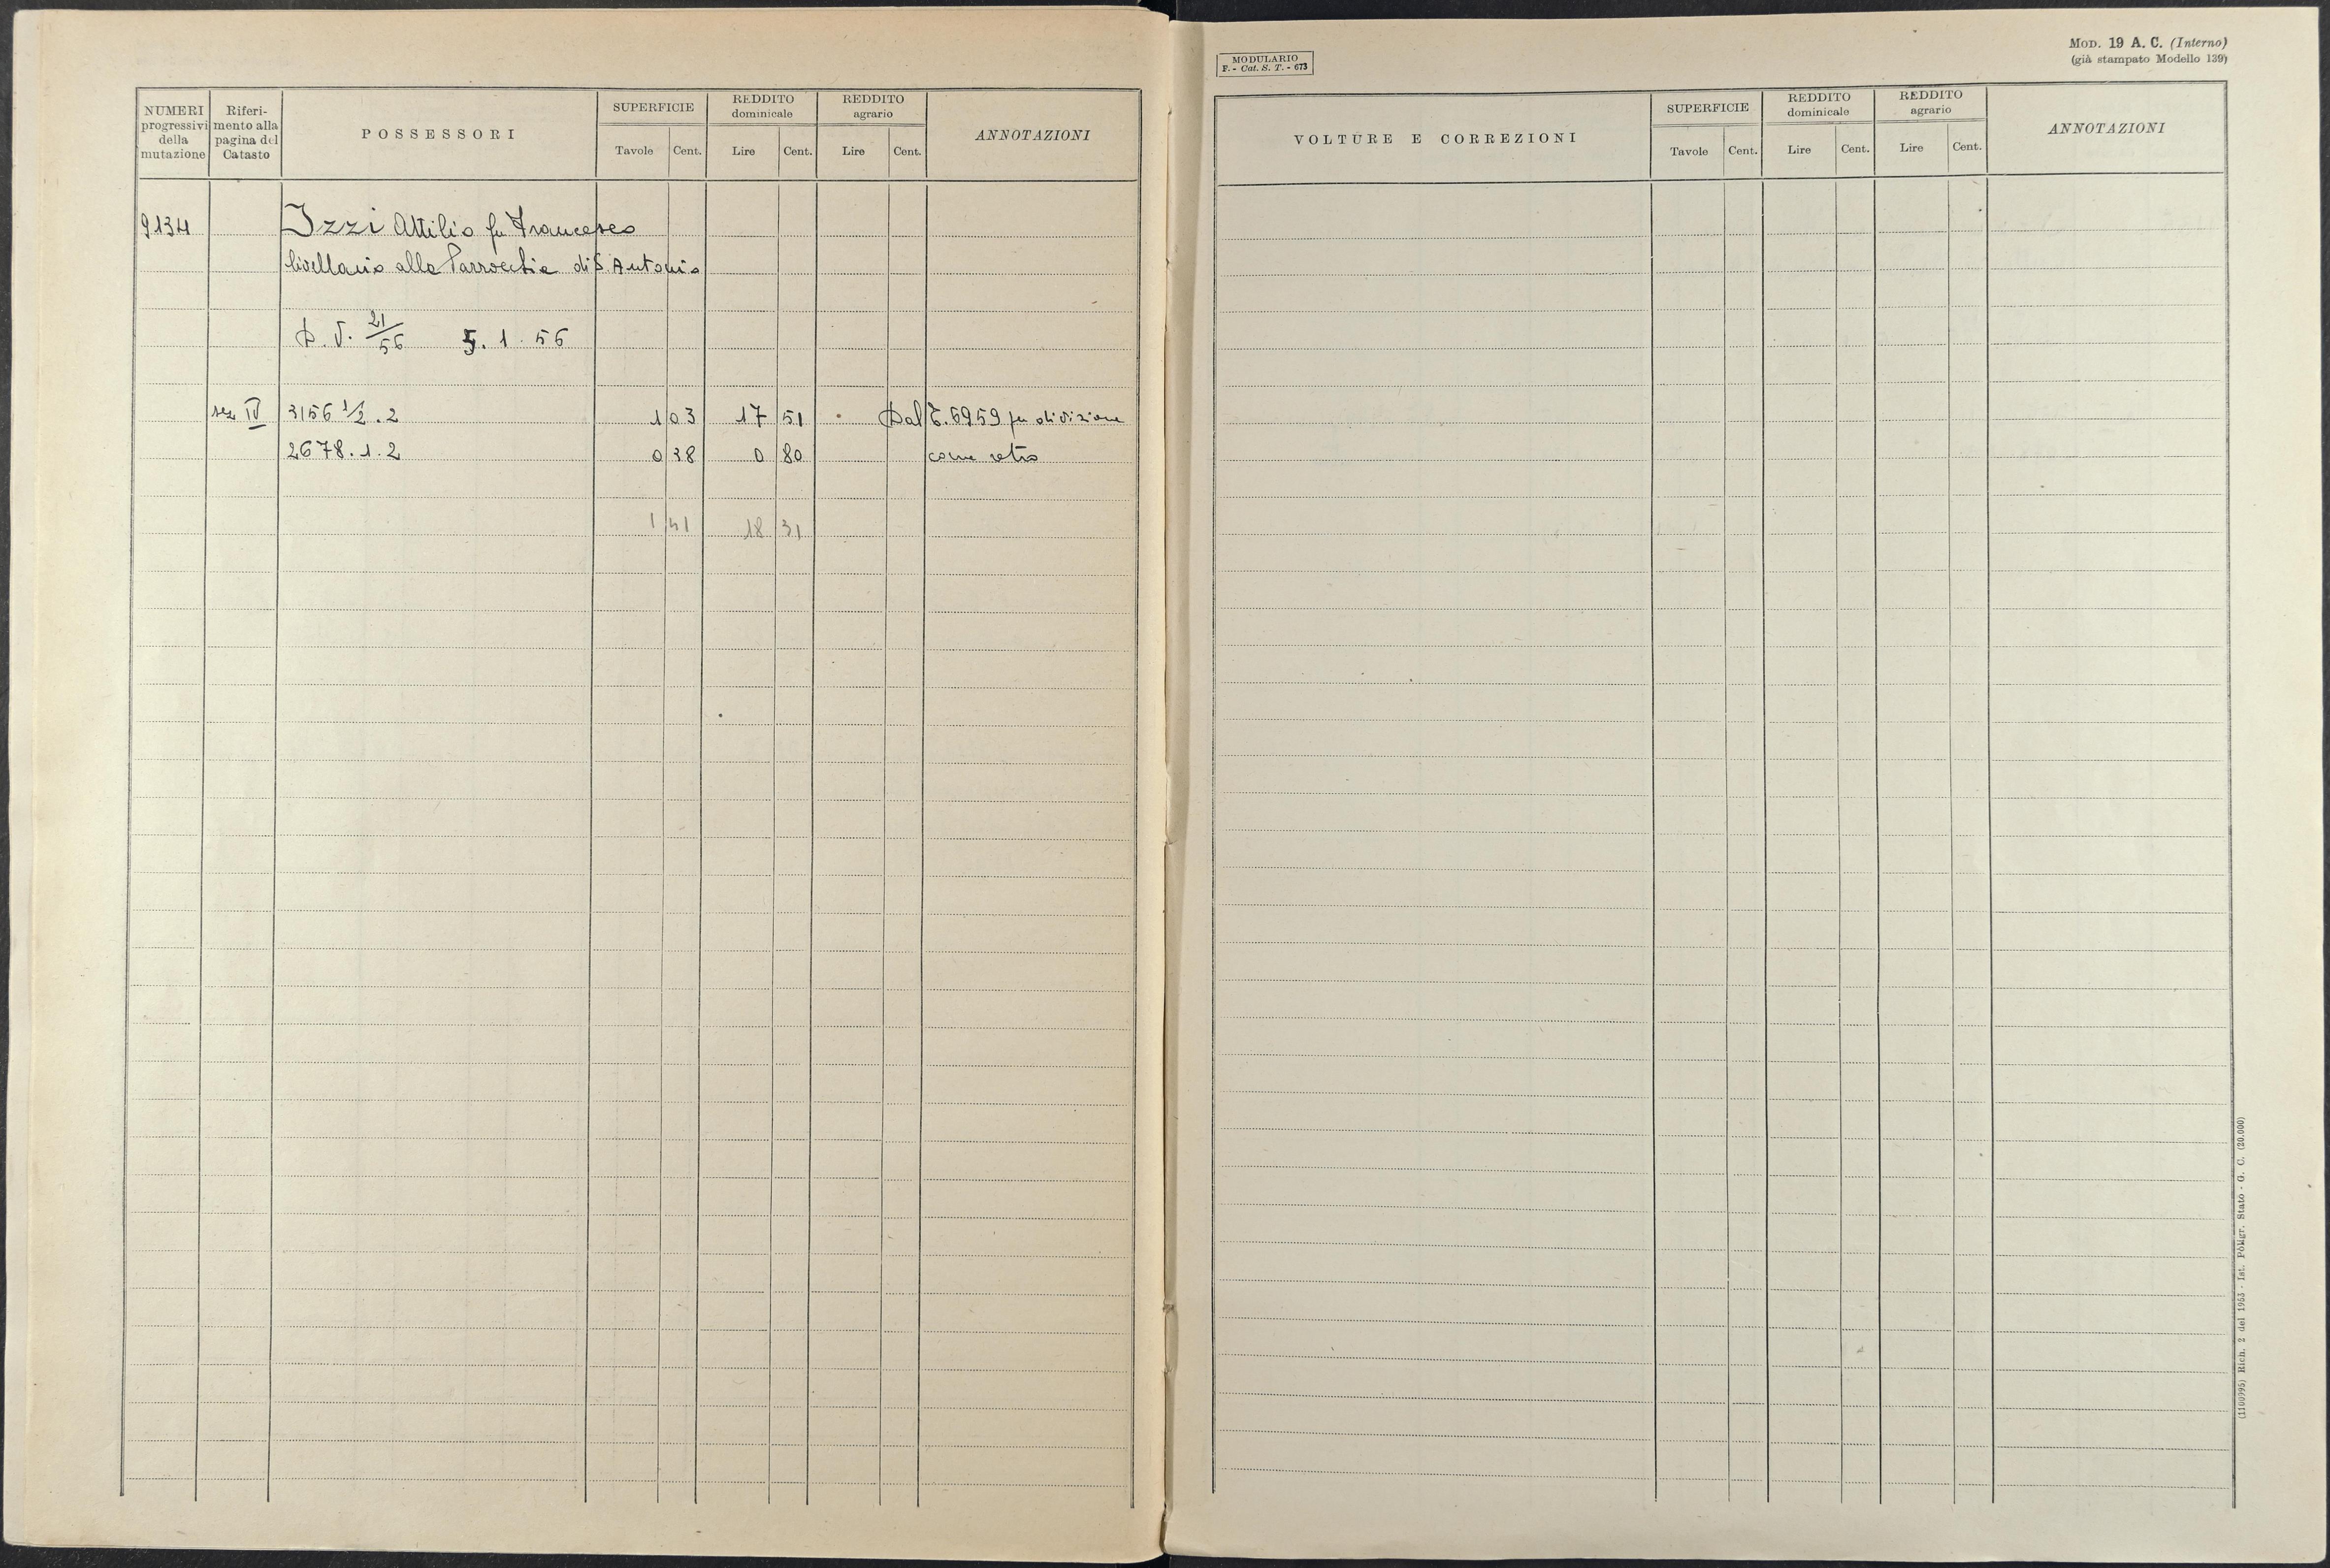 NUMERI progressivi della mutazione
Riferimento alla pagina del Catasto
POSSESSORI
SUPERFICIE
Tavole Cent.
REDDITO dominicale
Lire Cent.
REDDITO agrario
Lire Cent.
ANNOTAZIONI
9134 Izzi Attilio fu Francesco
livellario alla Parrocchia di S. Antonio
D. V. 21/56 5. 1. 56
sez IV 3156 1/2 . 2 1 03 17 51 Dal C. 6959 per divisione
2678 . 1 . 2 0 38 0 80 come retro
1 41 18 31
MODULARIO
F. - Cat. S. T. - 673
MOD. 19 A. C. (Interno)
(già stampato Modello 139)
VOLTURE E CORREZIONI
SUPERFICIE
Tavole Cent.
REDDITO dominicale
Lire Cent.
REDDITO agrario
Lire Cent.
ANNOTAZIONI
(1100795) Rich. 2 del 1953 - Ist. Poligr. Stato - G. C. (20.000)